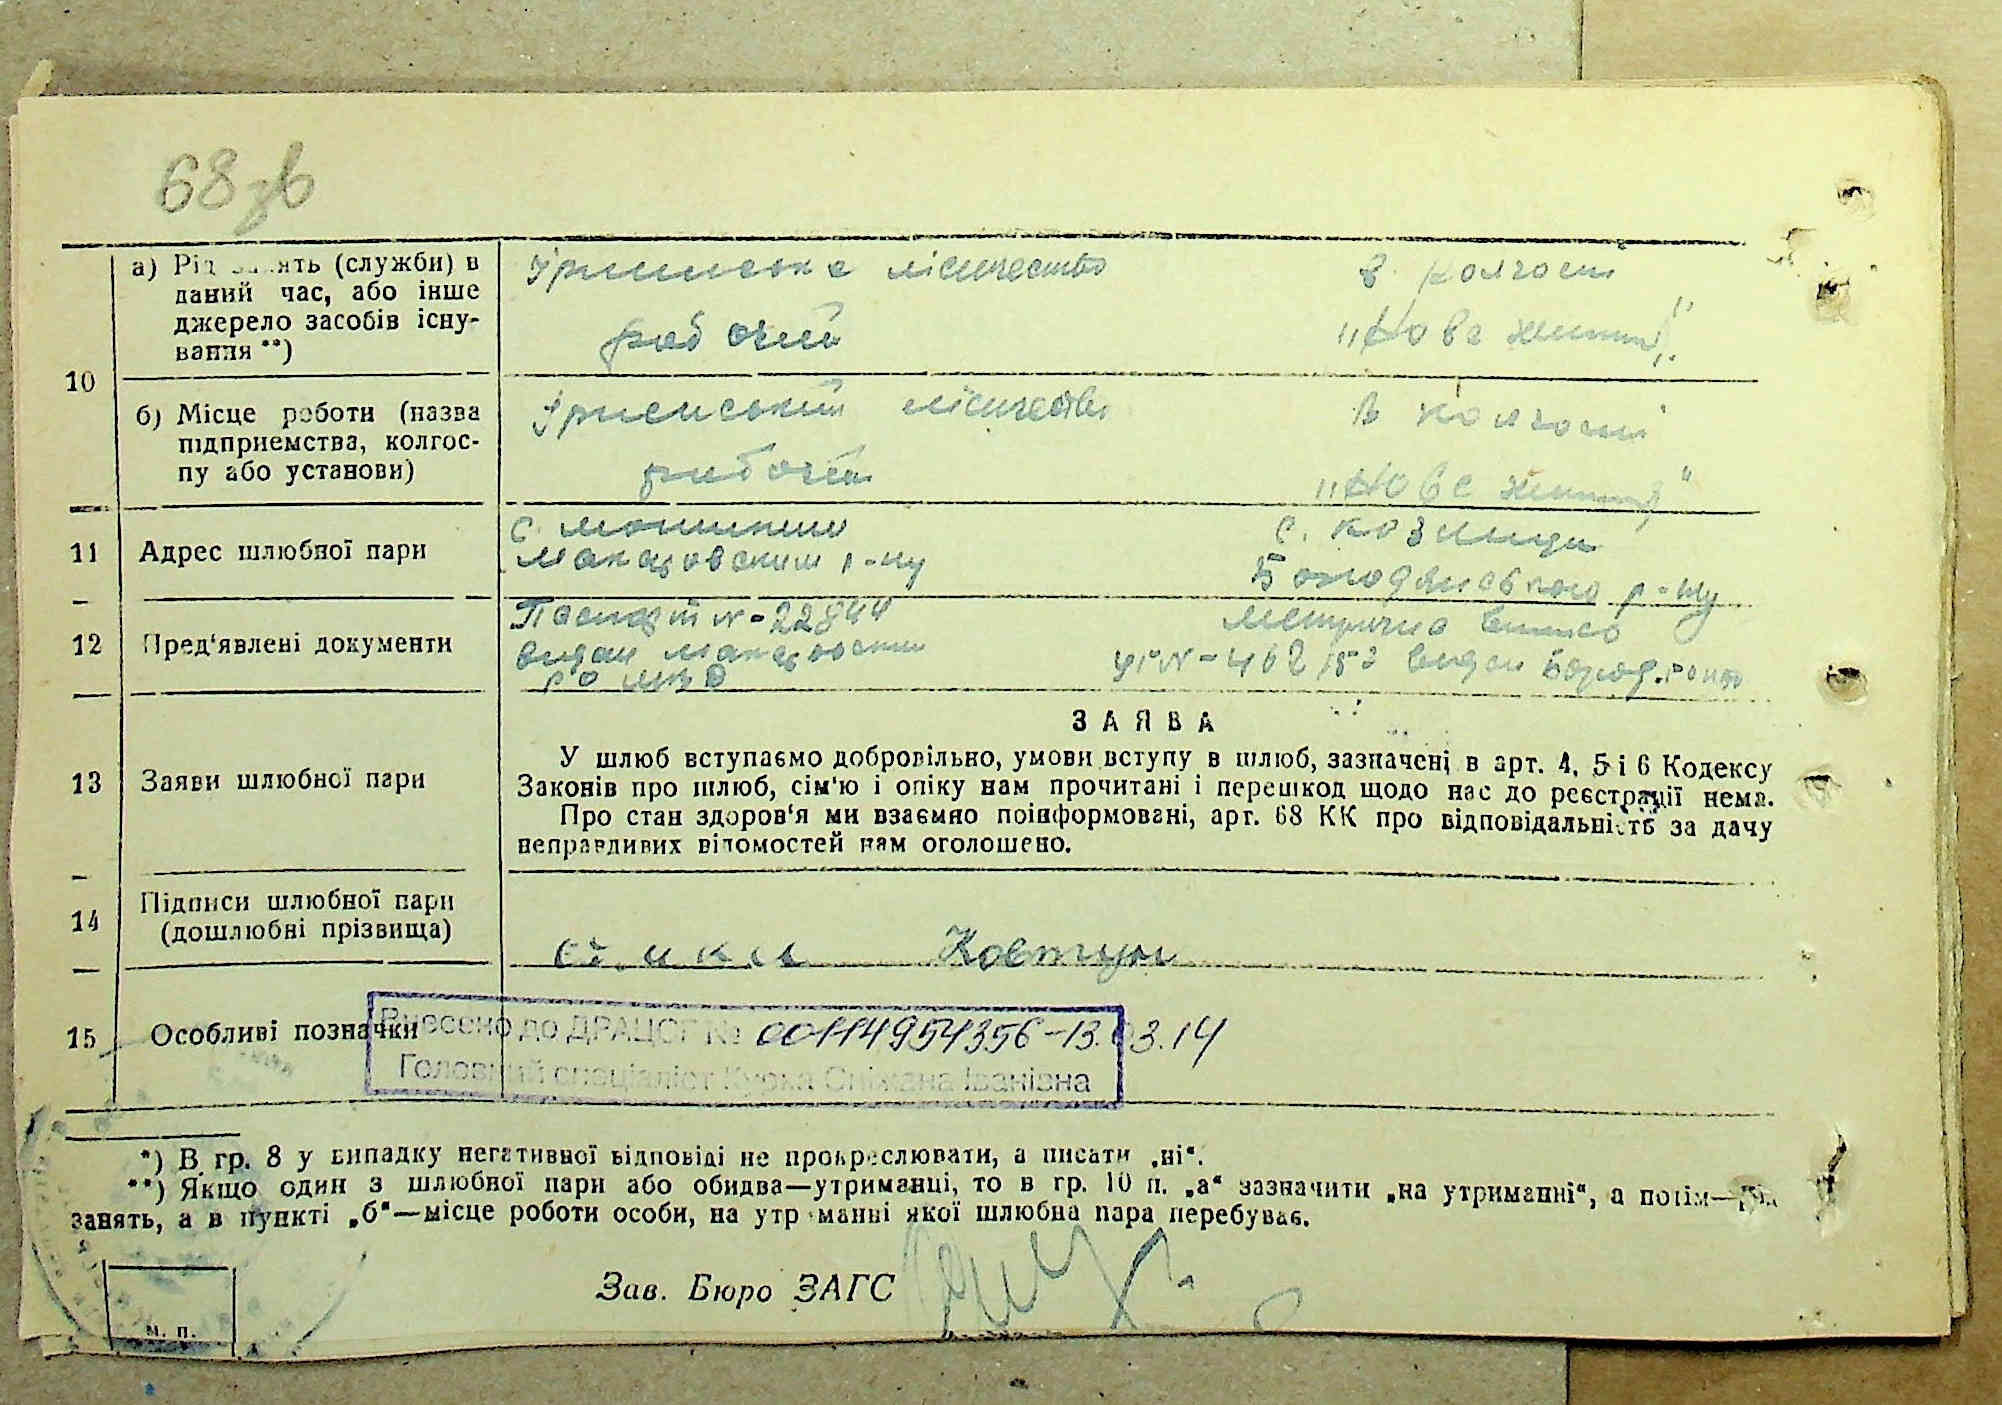 68зв
а) Рід занять (служби) в
даний час, або інше
джерело засобів існу-
вання **)
лісництво
в колгосп
робочий
„Нове життя"
10
б) Місце роботи (назва
підприємства, колгос-
пу або установи)
лісництво
в колгосп
робочий
„Нове життя"
11
Адрес шлюбної пари
с.
Макаровский р-ну
с. Козинци
Бородянського р-ну
12
Пред'явлені документи
Паспорт N-22844
видан Макаровским
РО МВД
метрична виписъ
N-462153 видан Бород.
13
Заяви шлюбної пари
ЗАЯВА
У шлюб вступаємо добровільно, умови вступу в шлюб, зазначені в арт. 4, 5 і 6 Кодексу
Законів про шлюб, сім'ю і опіку нам прочитані і перешкод щодо нас до реєстрації нема.
Про стан здоров'я ми взаємно поінформовані, арт. 68 КК про відповідальність за дачу
неправдивих відомостей нам оголошено.
14
Підписи шлюбної пари
(дошлюбні прізвища)
Ковтун
15
Особливі позначки
Внесено до ДРАЦСГ № 00114954356-13.03.14
Головний спеціаліст Сніжана Іванівна
*) В гр. 8 у випадку негативної відповіді не прокреслювати, а писати „ні".
**) Якщо один з шлюбної пари або обидва—утриманці, то в гр. 10 п. „а" зазначити „на утриманні", а потім—рід
занять, а в пункті „б"—місце роботи особи, на утриманні якої шлюбна пара перебуває.
Зав. Бюро ЗАГС
м. п.